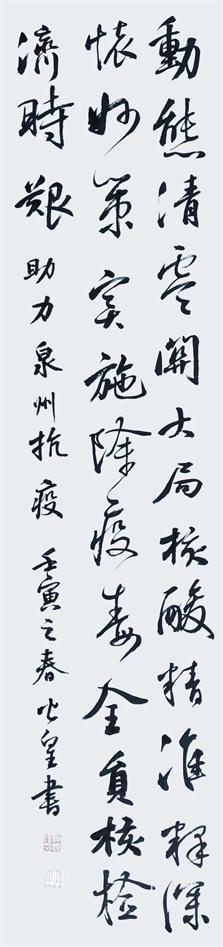 動態清零關大局核酸精准釋深
懷妙策实施除疫毒全員核檢
濟時艱 助力泉州抗疫 壬寅之春 火皇書